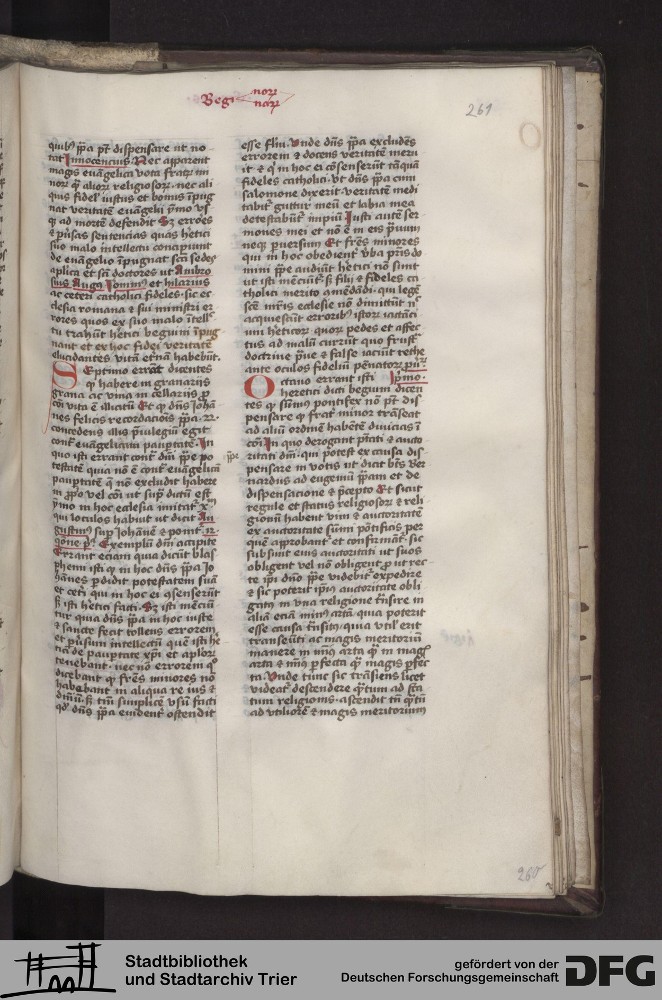 Begi norꝝ narꝝ
261
quibꝰ p̄pa pt̄ dispensare ut no
tat Innocencius Nec apparent
magis euāgelica vota fratrꝫ mi
norꝝ qͣ aliorꝝ religiosorꝝ nec ali
quis fidel' iustus et bonus īpug
nat veritatē euāgelii ymo vsꝫ
qꝫ ad mortē defendit Sꝫ errōes
suo malo intellectu concipiunt
de euāgelio īpugnat sc̄a sedes
aplica et sc̄i doctores ut Ambro
sius Augꝰ Ieroniꝰ et hilarius
ac ceteri catholici fideles sic ec
clesia romana et sui ministri er
rores quos ex suo malo ītell'c
tu trahūnt hetici beguini īpug
nant et ex hoc fidei veritatē
elucidantes vitā et̄nā habebūt
Septimo errāt dicentes
qꝫ habere in granariis
grana ac vina in cellariis ꝓ
cōi vita ē illicitū Et qꝫ dn̄s Iohā
nes felicis recordacionis p̄pa xxii
concedens illis p̄uilegiū egit
cont̄ euāgelicam paupertatē In
quo isti errant cont̄ dn̄i p̄pe po
testatē quia nō ē cont̄ euāgelicā
paupertatē qͣ nō excludit habere
in ꝓpo vel cōi ut supͣ dictū est
ymo in hoc eclesia imitatͬ xp̄m
qui loculos habuit ut dicit Au
gustinꝰ supͬ Iohānē
Exemplū dn̄i accipite
Errant eciam quia dicūt blas
phemi isti qꝫ in hoc dn̄s p̄pa Io
hānes ꝑdidit potestatem suā
et cetͥ qui in hoc ei cōsenserūt
sꝫ isti hetici facti Sꝫ isti mēciū
tur quia dn̄s p̄pa in hoc iuste
et sancte fecit tollens errorem
et puͥsum intellectū quē isti he
tici de paupertate xp̄i et aplorꝝ
tenebant nec nō errorem qͦ
dicebant qꝫ frēs minores nō
habebant in aliqua re ius et
dn̄iū sꝫ tm̄ simplicē vsū facti
qd̓ dn̄s p̄pa euident̄ ostendit
esse fl'm Vnde dn̄s p̄pa excludēs
errorem et docens veritatē meru
it et qͥ in hoc ei cōsenserūt tāquā
fideles catholici vt dn̄s p̄pa cum
salomone dixerit veritatē medi
tabitͬ guttur meū et labia mea
detestabūtͬ impiū Iusti autē ser
mones mei et nō ē in eis prauū
neqꝫ ꝑuersum Et frēs minores
qui in hoc obedient̄ vba prīs do
mini p̄pe audiūt hetici nō sunt
ut isti mēciūtͬ sꝫ filii et fideles ca
tholici merito cōmēdādi qui legē
sc̄e mr̄is eclesie nō dimittūt nͨ
acquiescūt erroribꝰ istorꝝ iactāci
um heticorꝝ quorꝝ pedes et affec
tus ad malū currūt quo frustͬ
doctrine pͣue et false iaciūt rethe
ante oculos fidelium pēnatorꝝ
Octauo errant isti ipīmo
heretici dicti beguini dicen
tes qꝫ sūmus pontifex nō pt̄ dis
pensare qꝫ frat̄ minor trāseat
ad aliū ordinē habētē diuicias ī
cōi In quo derogant ptāti et aucto
ritati dn̄i qui potest ex causa dis
pensare in votis ut dicit btūs Ber
nardus ad eugeniū p̄pam et de
dispensacione et p̄cepto Et sicut
regule et status religiosorꝫ et reli
gionū habent vim et auctoritatē
ex auctoritate sūmi pōtificis per
quē approbantͬ et confirmātͬ sic
subsunt eius auctoritati ut suos
obligent vel nō obligent ꝓ ut rec
te ip̄i dn̄o p̄pe videbitͬ expedire
et sic poterit ip̄iꝰ auctoritate obli
gatꝰ in vna religione trāsire in
aliā eciā minꝰ artā quia poterit
esse causa trāsitꝰ quia vtilꝰ erit
transeūti ac magis meritoriū
manere in minꝰ arta qͣ in magꝭ
arta et minꝰ ꝑfecta qͣ magis ꝑfec
ta Vnde tunc sic trāsiens licet
videatͬ descendere qͣtum ad sta
tum religionis ascendit tn̄ qͣtū
ad vtilioē et magis meritorium
p̄pe
260
Stadtbibliothek
und Stadtarchiv Trier
gefördert von der
Deutschen Forschungsgemeinschaft
DFG